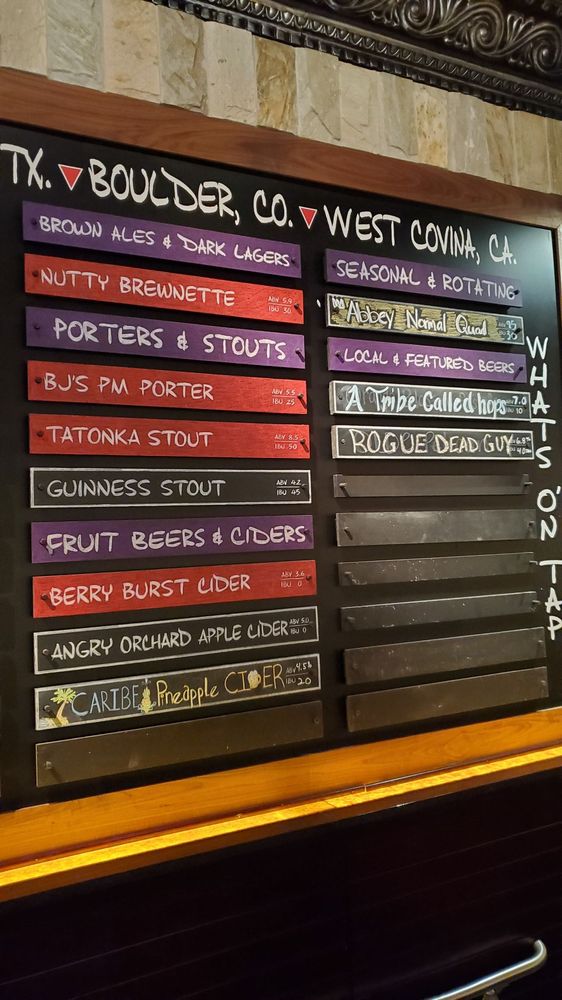 TX. ▼ BOULDER, CO. ▼ WEST COVINA, CA.
BROWN ALES & DARK LAGERS
NUTTY BREWNETTE ABV 5.9 IBU 30
PORTERS & STOUTS
BJ'S PM PORTER ABV 5.5 IBU 25
TATONKA STOUT ABV 8.5 IBU 50
GUINNESS STOUT ABV 4.2 IBU 45
FRUIT BEERS & CIDERS
BERRY BURST CIDER ABV 3.6 IBU 0
ANGRY ORCHARD APPLE CIDER ABV 5.0 IBU 0
CARIBE Pineapple CIDER ABV 4.5% IBU 20
SEASONAL & ROTATING
Abbey Normal Quad
LOCAL & FEATURED BEERS
A Tribe Called hops ABV 7.0 IBU 10
ROGUE DEAD GUY
WHAT'S O'N TAP